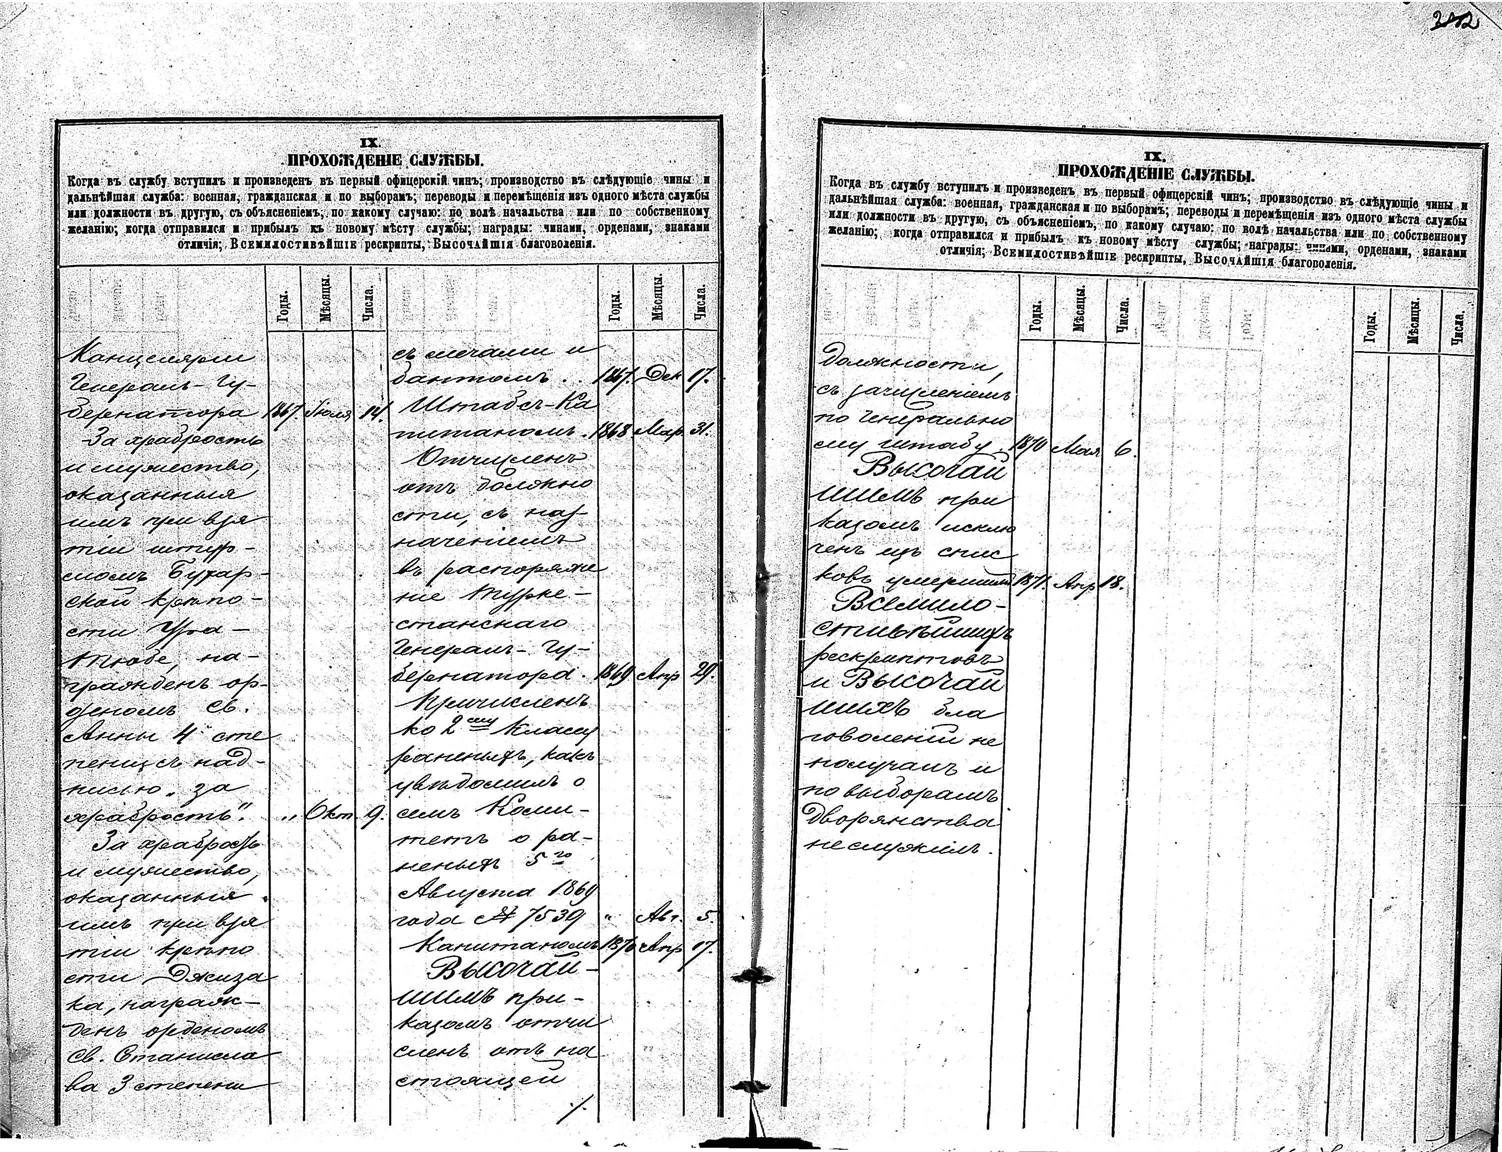 IX.
ПРОХОЖДЕНІЕ СЛУЖБЫ.
Когда въ службу вступилъ и произведенъ въ первый офицерскій чинъ; производство въ слѣдующіе чины и
дальнѣйшая служба: военная, гражданская и по выборамъ; переводы и перемѣщенія изъ одного мѣста службы
или должности въ другую, съ объясненіемъ, по какому случаю: по волѣ начальства или по собственному
желанію; когда отправился и прибылъ къ новому мѣсту службы; награды: чинами, орденами, знаками
отличія; Всемилостивѣйшіе рескрипты, Высочайшія благоволенія.
Годы. Мѣсяцы. Числа.
Канцеляріи
Генералъ-Гу-
бернатора 1867. Іюля 14.
За храбрость
и мужество,
оказанныя
имъ при взя
тіи штур-
момъ Бухар-
ской крѣпо-
сти Ура-
Тюбе, на-
гражденъ ор-
деномъ Св.
Анны 4 сте
пени съ над-
писью „за
храбрость". „ Окт. 9.
За храбрость
и мужество,
оказанныя
имъ при взя
тіи крѣпо
сти Джиза
ка, награж-
денъ орденомъ
Св. Станисла
ва 3 степени
Годы. Мѣсяцы. Числа.
съ мечами и
бантомъ .. 1867. Дек 17.
Штабсъ-Ка
питаномъ. 1868 Мар. 31.
Отчисленъ
отъ должно
сти, съ наз-
наченіемъ
въ распоряже
ніе Турке-
станскаго
Генералъ-Гу-
бернатора. 1869 Апр 29.
Причисленъ
ко 2му классу
раненыхъ, какъ
увѣдомилъ о
семъ Коми-
тетъ о ра-
неныхъ 5го
Августа 1869
года № 7539 „ Авг. 5.
Капитаномъ 1870 Апр 17.
Высочай-
шимъ при-
казомъ отчи
сленъ отъ на
стоящей
IX.
ПРОХОЖДЕНІЕ СЛУЖБЫ.
Когда въ службу вступилъ и произведенъ въ первый офицерскій чинъ; производство въ слѣдующіе чины и
дальнѣйшая служба: военная, гражданская и по выборамъ; переводы и перемѣщенія изъ одного мѣста службы
или должности въ другую, съ объясненіемъ, по какому случаю: по волѣ начальства или по собственному
желанію; когда отправился и прибылъ къ новому мѣсту службы; награды: чинами, орденами, знаками
отличія; Всемилостивѣйшіе рескрипты, Высочайшія благоволенія.
Годы. Мѣсяцы. Числа.
должности,
съ зачисленіемъ
по Генерально
му штабу 1870 Мая 6.
Высочай
шимъ при
казомъ исклю
ченъ изъ спис
ковъ умершимъ 1871. Апр 18.
Всемило-
стивѣйшихъ
рескриптовъ
и Высочай
шихъ бла
говоленій не
получалъ и
по выборамъ
Дворянства
не служилъ.
Годы. Мѣсяцы. Числа.